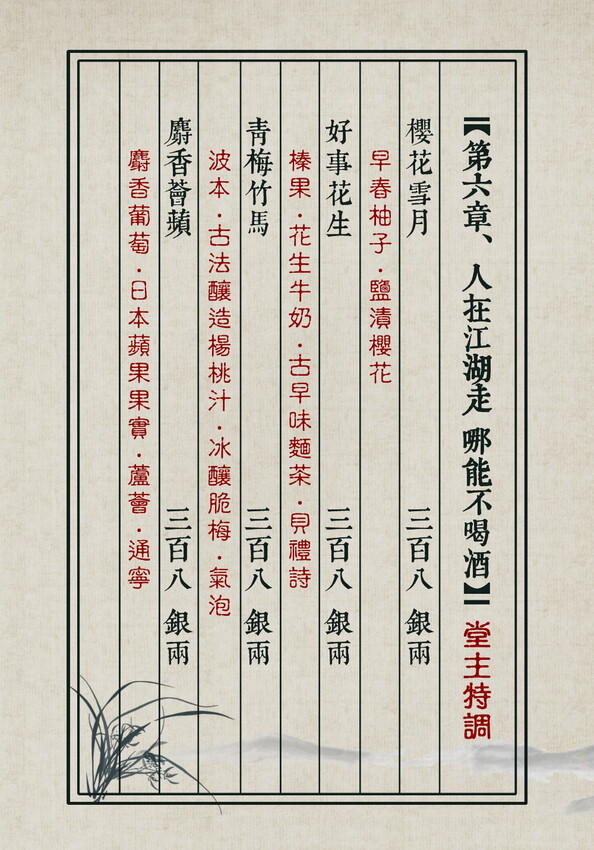 【第六章、人在江湖走 哪能不喝酒】堂主特調
櫻花雪月 三百八 銀兩
早春柚子·鹽漬櫻花
好事花生 三百八 銀兩
榛果·花生牛奶·古早味麵茶·貝禮詩
青梅竹馬 三百八 銀兩
波本·古法釀造楊桃汁·冰釀脆梅·氣泡
麝香薈蘋 三百八 銀兩
麝香葡萄·日本蘋果果實·蘆薈·通寧